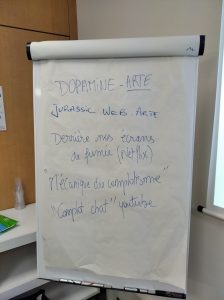 DOPAMINE - ARTE
JURASSIC WEB ARTE
Derrière nos écrans
de fumée (Netflix)
"Mécanique du complotisme"
"Complot chat" youtube